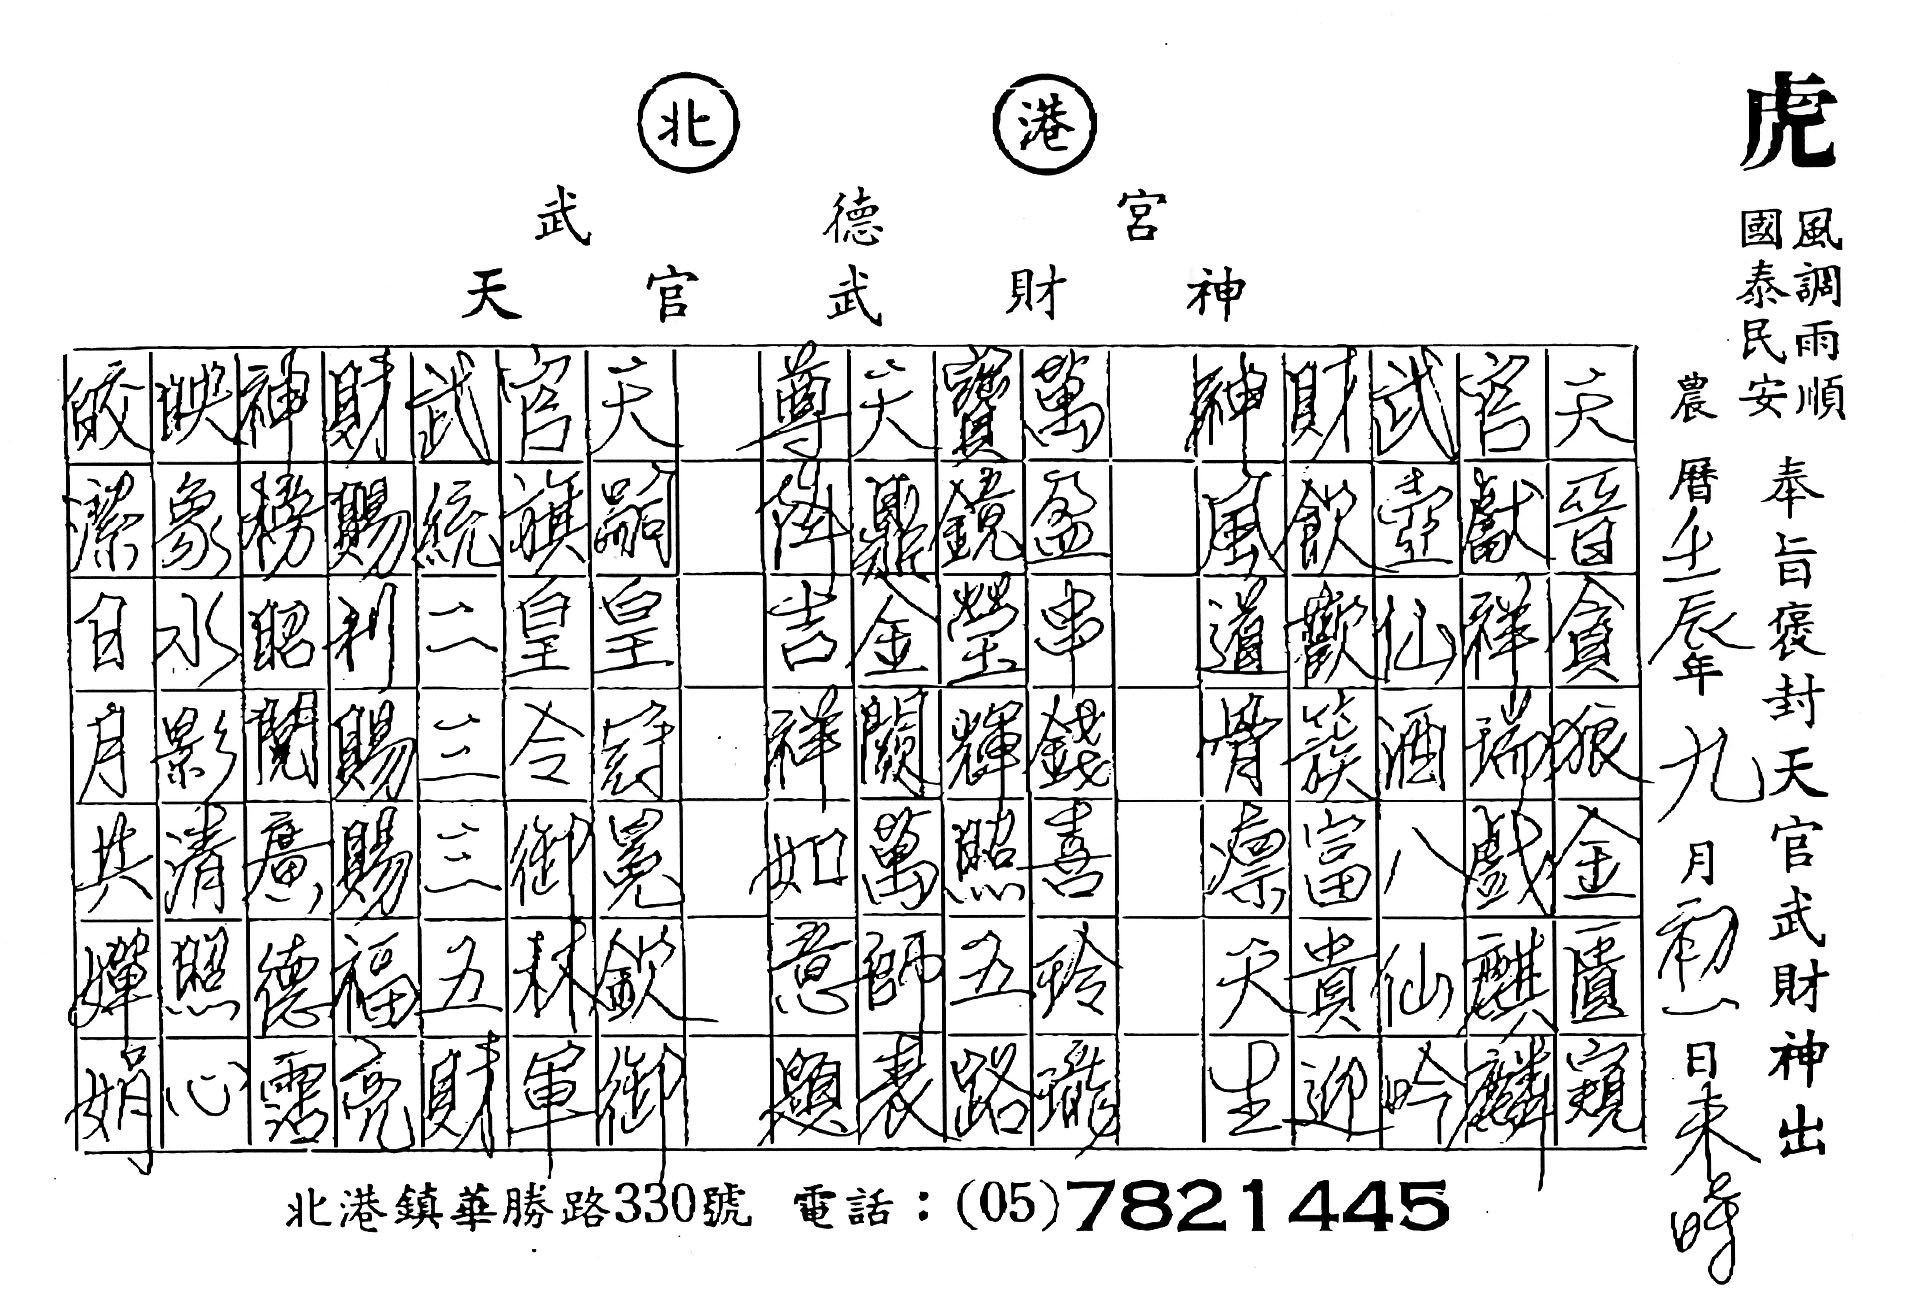 北港
武德宮
天官武財神
虎
風調雨順
國泰民安
奉旨褒封天官武財神出
農曆壬辰年九月初一日未時
天晉貪狼金匱窺
官獻祥瑞戲麒麟
武壺仙酒八仙吟
財飲歡簇富貴迎
神風道骨凛天生
萬盈串錢喜玲瓏
寶鏡瑩輝照五路
天鼎金闕萬師表
尊降吉祥如意題
天嗣皇冠冕欽御
官旗皇令御林軍
武統二三三五財
財賜利賜賜福亮
神榜昭閱廣德靈
映象水影清照心
皎潔日月共嬋娟
北港鎮華勝路330號 電話：(05)7821445